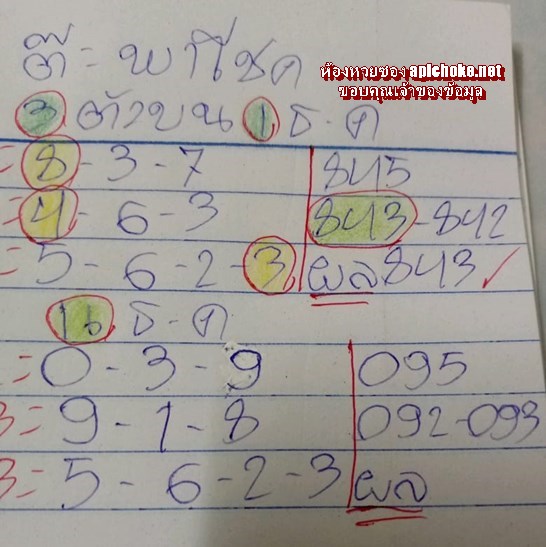 ต๊ะ-พาโชค
ห้องหวยซอง apichoke.net
ขอบคุณเจ้าของข้อมูล
3 ตัวบน 1 ธ.ค
=8-3-7 845
=4-6-3 843-842
=5-6-2-3 ผล843 ✓
16 ธ-ค
=0-3-9 095
3=9-1-8 092-093
3=5-6-2-3 ผล